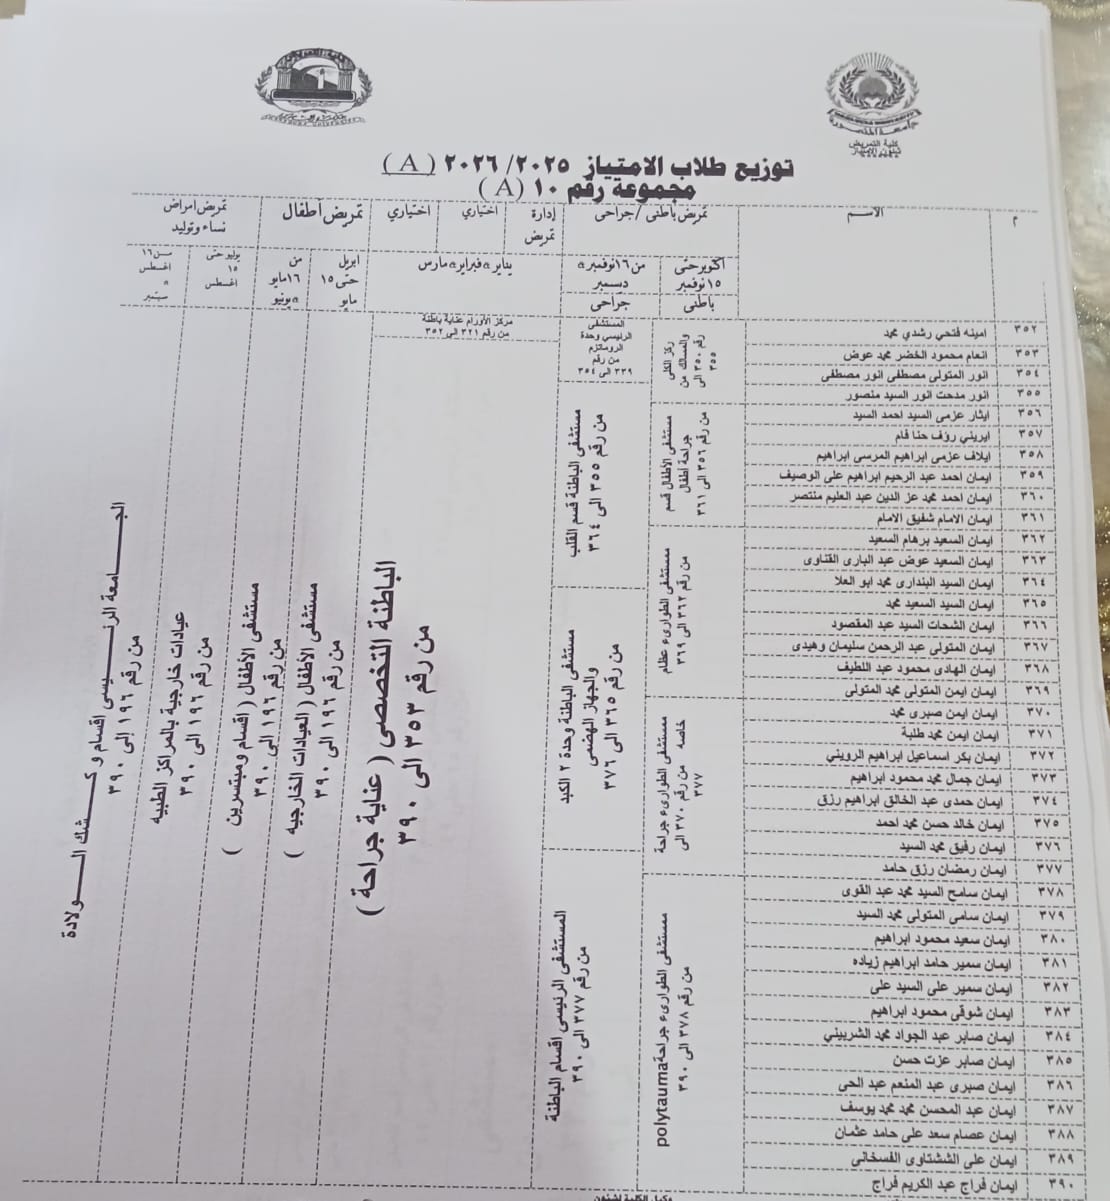 جامعة المنصورة
كلية التمريض
شئون الامتياز
توزيع طلاب الامتياز ٢٠٢٥/ ٢٠٢٦ ( A )
مجموعة رقم ١٠ ( A )
م
الاسم
تمريض باطنى /جراحى
إدارة تمريض
اختياري
اختياري
تمريض أطفال
تمريض أمراض نساء وتوليد
أكتوبر حتى ١٥ نوفمبر
من ١٦ نوفمبر a ديسمبر
يناير a فبراير a مارس
ابريل حتى ١٥ مايو
من ١٦ مايو a يونيو
يوليو حتى ١٥ اغسطس
من ١٦ اغسطس a سبتمبر
باطنى
جراحى
٣٥٢ امينه فتحي رشدي محمد
٣٥٣ انعام محمود الخضر محمد عوض
٣٥٤ انور المتولى مصطفى انور مصطفى
٣٥٥ انور مدحت انور السيد منصور
٣٥٦ ايثار عزمى السيد احمد السيد
٣٥٧ ايريني رؤف حنا فام
٣٥٨ ايلاف عزمى ابراهيم المرسى ابراهيم
٣٥٩ ايمان احمد عبد الرحيم ابراهيم على الوصيف
٣٦٠ ايمان احمد محمد عز الدين عبد العليم منتصر
٣٦١ ايمان الامام شفيق الامام
٣٦٢ ايمان السعيد برهام السعيد
٣٦٣ ايمان السعيد عوض عبد البارى القناوى
٣٦٤ ايمان السيد البندارى محمد ابو العلا
٣٦٥ ايمان السيد السعيد محمد
٣٦٦ ايمان الشحات السيد عبد المقصود
٣٦٧ ايمان المتولى عبد الرحمن سليمان وهيدى
٣٦٨ ايمان الهادى محمود عبد اللطيف
٣٦٩ ايمان ايمن المتولى محمد المتولى
٣٧٠ ايمان ايمن صبرى محمد
٣٧١ ايمان ايمن محمد طلبة
٣٧٢ ايمان بكر اسماعيل ابراهيم الرويني
٣٧٣ ايمان جمال محمد محمود ابراهيم
٣٧٤ ايمان حمدى عبد الخالق ابراهيم رزق
٣٧٥ ايمان خالد حسن محمد احمد
٣٧٦ ايمان رفيق محمد السيد
٣٧٧ ايمان رمضان رزق حامد
٣٧٨ ايمان سامح السيد محمد عبد القوى
٣٧٩ ايمان سامى المتولى محمد السيد
٣٨٠ ايمان سعيد محمود ابراهيم
٣٨١ ايمان سمير حامد ابراهيم زياده
٣٨٢ ايمان سمير على السيد على
٣٨٣ ايمان شوقى محمود ابراهيم
٣٨٤ ايمان صابر عبد الجواد محمد الشربيني
٣٨٥ ايمان صابر عزت حسن
٣٨٦ ايمان صبرى عبد المنعم عبد الحى
٣٨٧ ايمان عبد المحسن محمد محمد يوسف
٣٨٨ ايمان عصام سعد على حامد عثمان
٣٨٩ ايمان على الششتاوى الفسخانى
٣٩٠ ايمان فراج عبد الكريم فراج
ركز الكلى
والمسالك من
رقم ٣٥٠ الى
٣٥٥
مستشفى الأطفال قسم
جراحة أطفال
من رقم ٣٥٦ الى ٣٦١
مستشفى الطوارىء عظام
من رقم ٣٦٢ الى ٣٦٩
مستشفى الطوارىء جراحة
خاصه من رقم ٣٧٠ الى
٣٧٧
مستشفى الطوارىء جراحة polytauma
من رقم ٣٧٨ الى ٣٩٠
المستشفى
الرئيسي وحدة
الروماتزم
من رقم
٣٣٩ الى ٣٥٤
مستشفى الباطنة قسم القلب
من رقم ٣٥٥ الى ٣٦٤
مستشفى الباطنة وحدة ٢ الكبد
والجهاز الهضمى
من رقم ٣٦٥ الى ٣٧٦
المستشفى الرئيسى اقسام الباطنة
من رقم ٣٧٧ الى ٣٩٠
مركز الأورام عناية باطنة
من رقم ٣٢١ الى ٣٥٢
الباطنة التخصصى ( عناية جراحة )
من رقم ٣٥٣ الى ٣٩٠
مستشفى الأطفال ( العيادات الخارجيه )
من رقم ١٩٦ الى ٣٩٠
مستشفى الأطفال ( اقسام ومبتسرين )
من رقم ١٩٦ الى ٣٩٠
عيادات خارجية بالمراكز الطبيه
من رقم ١٩٦ الى ٣٩٠
الجـامعة الرئـيسى اقسام وكـشك الـولادة
من رقم ١٩٦ إلى ٣٩٠
وكيل الكلية لشئون